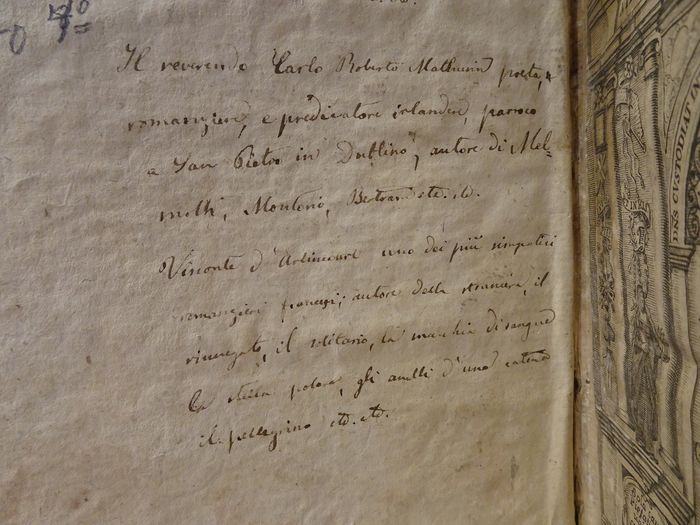 170
Il reverendo Carlo Roberto Mathurin poeta, e
romanziere, e predicatore irlandese, parroco
a San Pietro in Dublino, autore di Mel-
moth, Montorio, Bertram etc. etc.
Visconte d'Arlincourt uno dei più simpatici
romanzieri francesi; autore della straniera, il
rinnegato, il solitario, la macchia di sangue
la stella polare, gli anelli d'una catena
il pellegrino etc. etc.
DNS CVSTODIAT